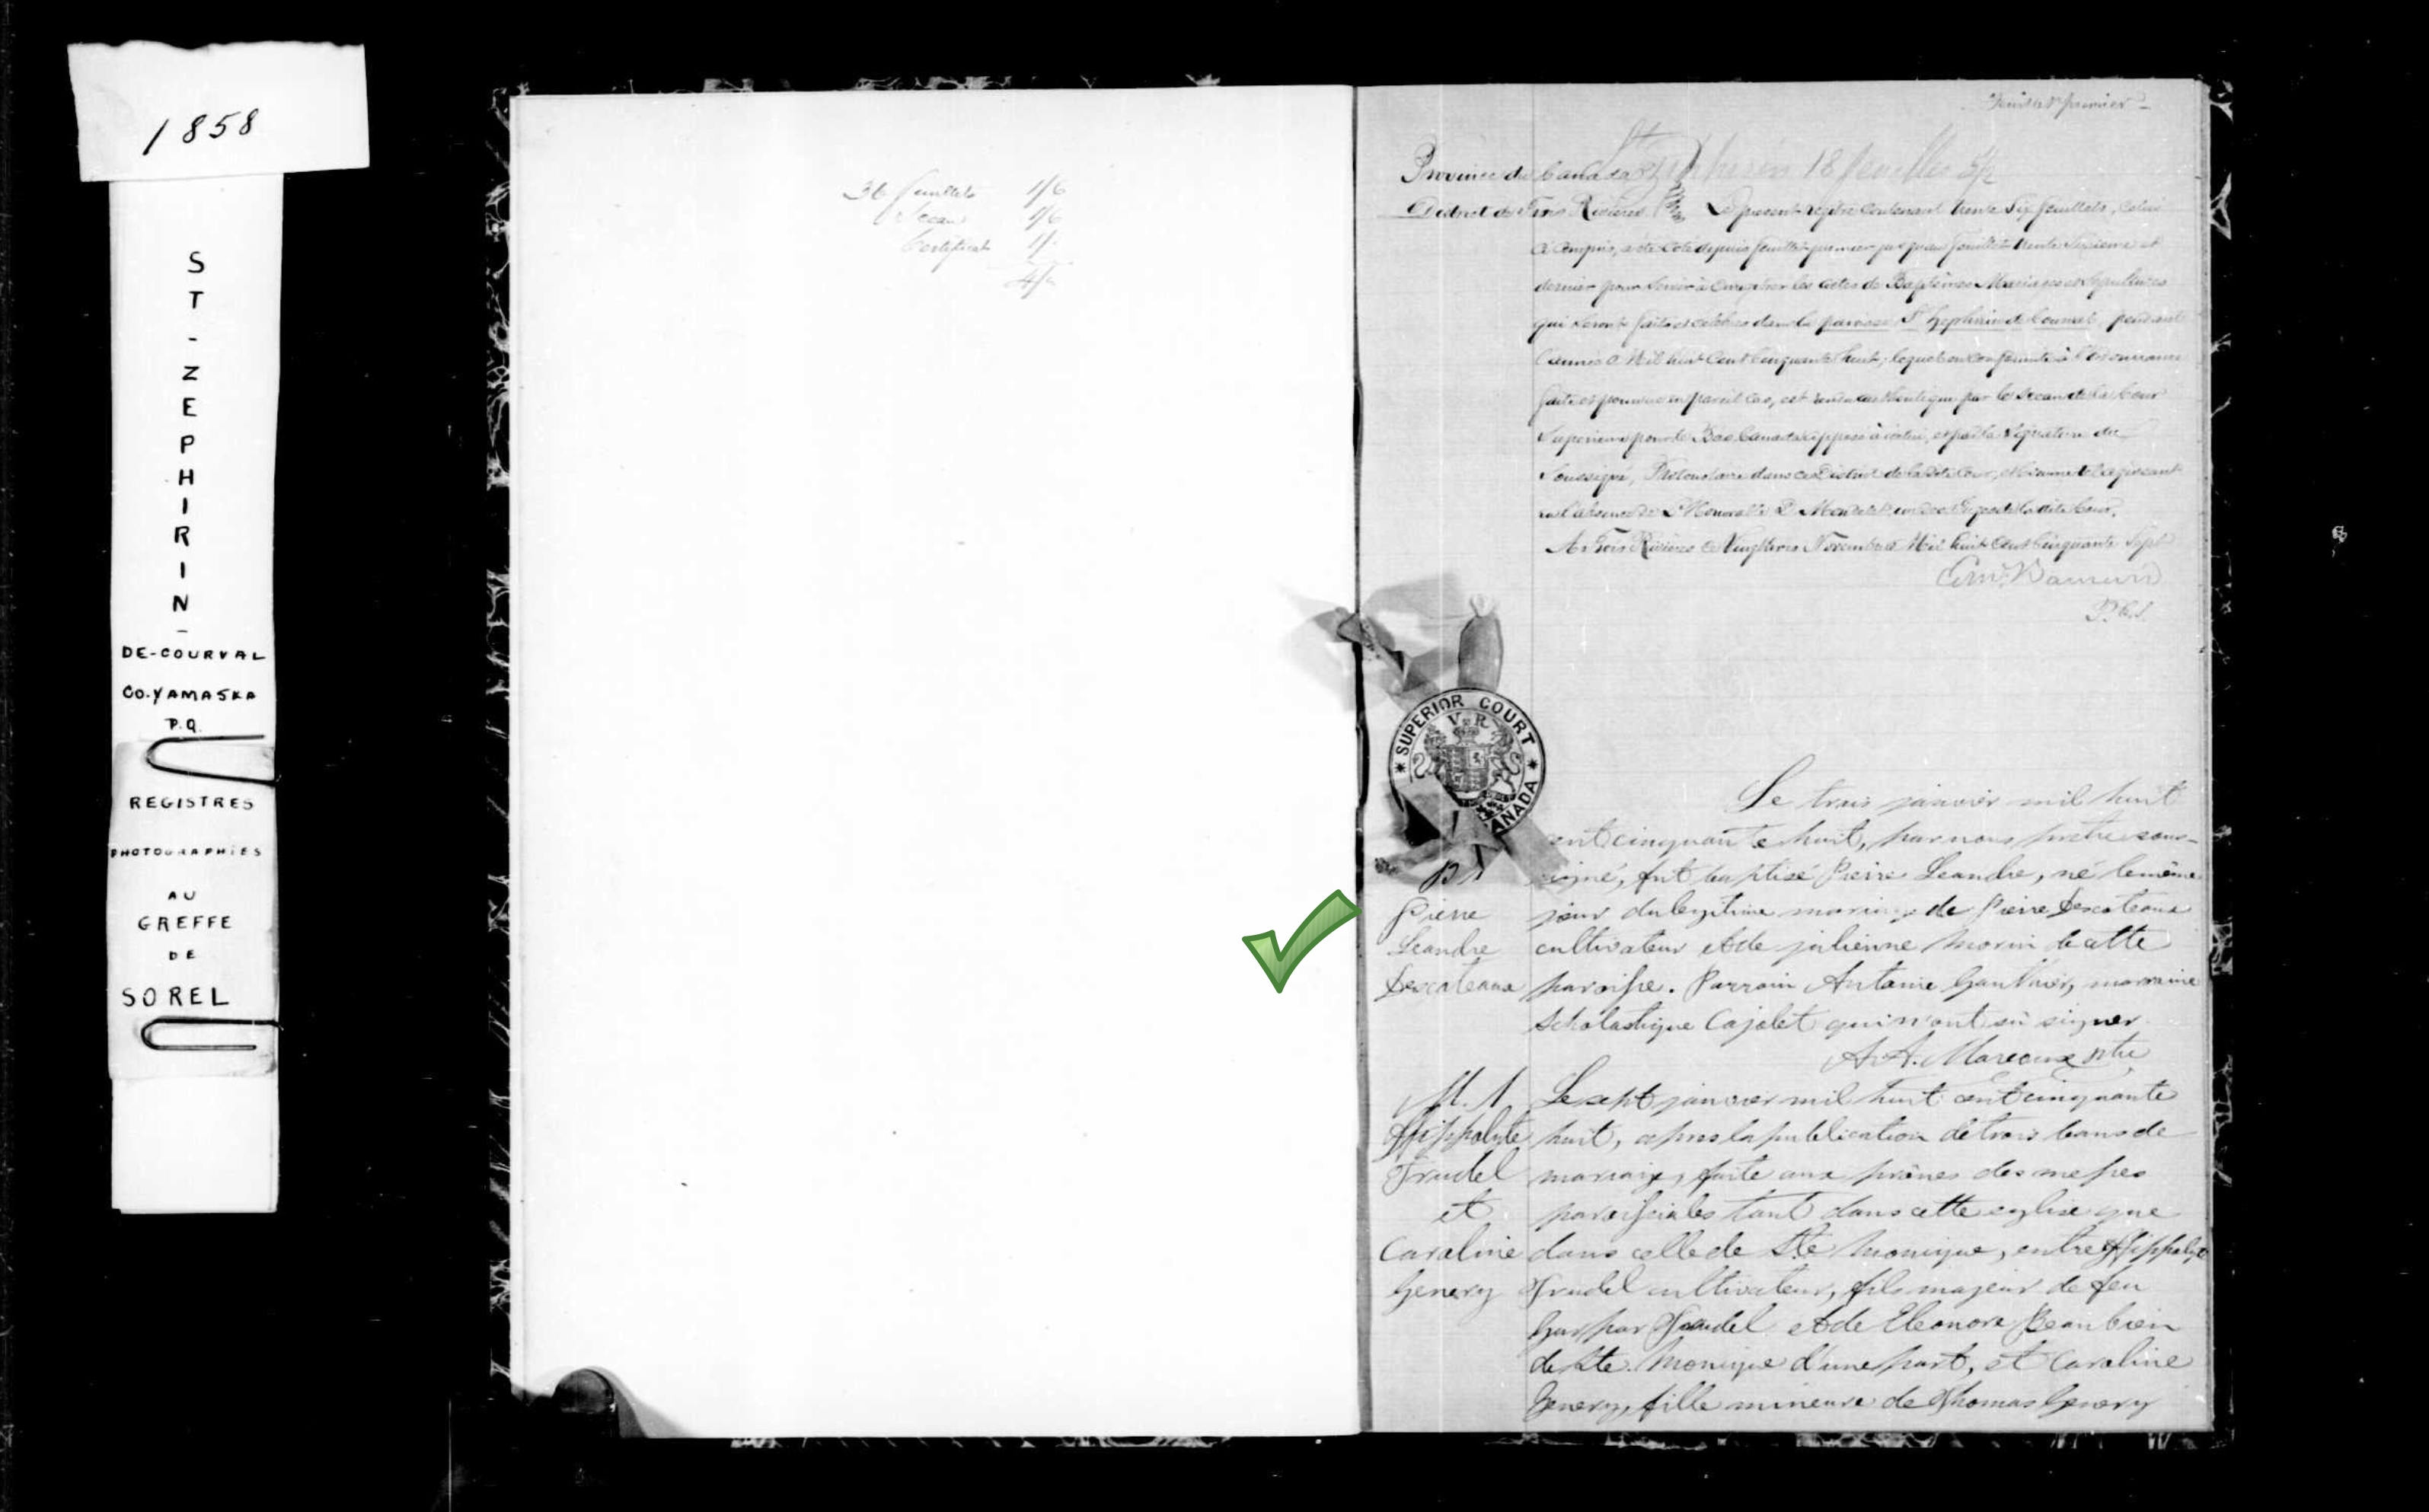 1858
ST-ZEPHIRIN-
DE-COURVAL
CO.YAMASKA
P.Q.
REGISTRES
PHOTOGRAPHIÉS
AU
GREFFE
DE
SOREL
36 feuillets 1/6
Sceau 1/6
Certificat 1/-
4/-
Feuillet premier
18 feuilles
Province du Canada
District des Trois Rivières Le présent registre contenant trente six feuillets, celui
ci compris, a été coté depuis feuillet premier jusqu'au feuillet trente sixième et
dernier pour servir à enregistrer les actes de Baptêmes Mariages et Sépultures
qui seront faits et célébrés dans la paroisse St Zéphirin de Courval, pendant
l'année Mil huit Cent Cinquante huit, lequel en conformité à l'ordonnance
faite et pourvue en pareil cas, est rendu authentique par le Sceau de la Cour
Supérieure pour le Bas Canada apposé à icelui, et par la Signature du
Soussigné, Protonotaire dans ce District de la dite Cour,
en l'absence de l'Honorable D. Mondelet un des Juges de la dite Cour.
Aux Trois Rivières le Vingt trois Novembre Mil huit Cent Cinquante Sept
P.C.S.
SUPERIOR COURT
V R
CANADA
Le trois janvier mil huit
cent cinquante huit, par nous prêtre sous-
B 1 signé, fut baptisé Pierre Leandre, né le même
Pierre jour du légitime mariage de Pierre Descoteaux
Leandre cultivateur et de julienne Morin de cette
Descoteaux paroisse. Parrain Antoine Gauthier, marraine
Scholastique Cajolet qui n'ont su signer
A. A. Marcoux ptre
M. 1 Le sept janvier mil huit cent cinquante
Hippolyte huit, apres la publication de trois bans de
Trudel mariage, faite aux prônes des messes
et paroissiales tant dans cette eglise que
Caroline dans celle de Ste Monique, entre Hippolyte
Genery Trudel cultivateur, fils majeur de feu
Gaspar Trudel et de Eleonore Beaubien
de Ste. Monique d'une part, et Caroline
Genery, fille mineure de Thomas Genery